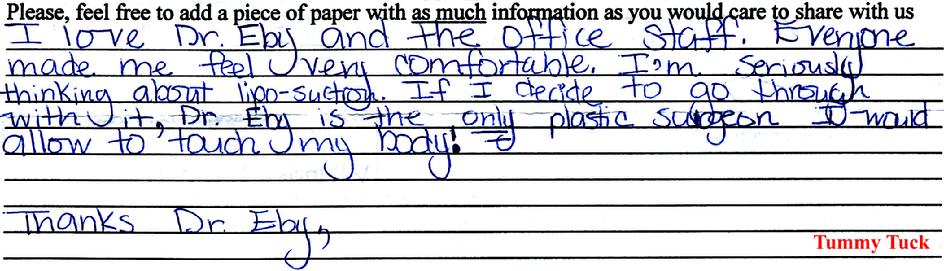 Please, feel free to add a piece of paper with as much information as you would care to share with us
I love Dr. Eby and the office staff. Everyone
made me feel very comfortable. I'm seriously
thinking about lipo-suction. If I decide to go through
with it, Dr. Eby is the only plastic surgeon I would
allow to touch my body!
Thanks Dr. Eby,
Tummy Tuck